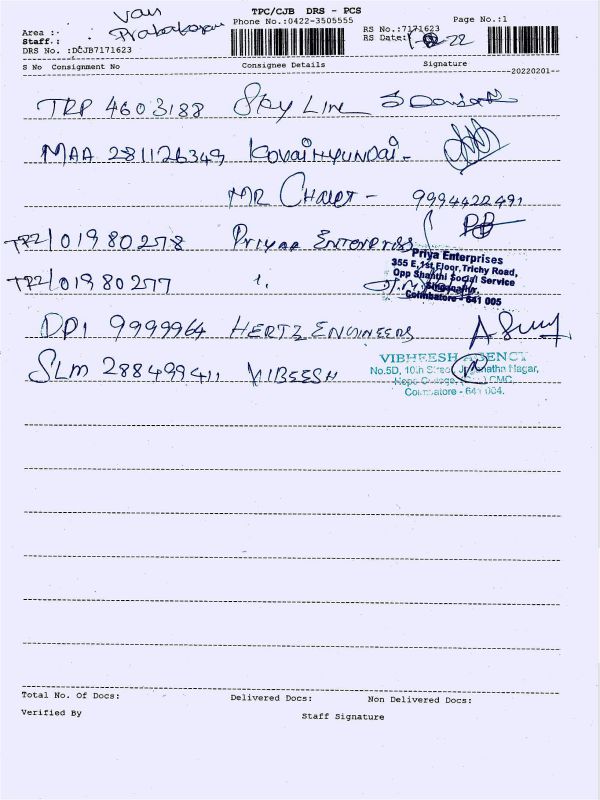 TPC/CJB DRS - PCS
Phone No.:0422-3505555
Page No.:1
Area :- Van
Staff.: Prabakaran
RS No.:7171623
RS Date: 22
DRS No. :DCJB7171623
S No Consignment No Consignee Details Signature
--20220201--
TRP 4603188 SKY LINE
MAA 281126349 KOVAI HYUNDAI -
MR - 9994422491
TRZ/01980278 PRIYAA ENTERPRISES
Priya Enterprises
355 E, 1st Floor, Trichy Road,
Opp Shanthi Social Service
Coimbatore - 641 005
TRZ/01980277
DPI 9999964 HERTZ ENGINEERS
VIBHEESH AGENCY
No.5D, 10th Street, Nagar,
CMC,
Coimbatore - 641 004.
SLM 288499411 VIBEESH
Total No. Of Docs: Delivered Docs: Non Delivered Docs:
Verified By Staff Signature